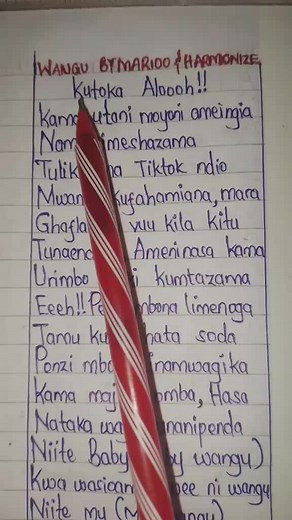 WANGU BY MARIOO & HARMONIZE
Kutoka Aloooh!!
Kama utani moyoni ameingia
Nam imeshazama
Tulik na Tiktok ndio
Mwan kufahamiana, mara
Ghafla vuu kila kitu
Tunaend Ameninasa kama
Urimbo i kumtazama
Eeeh!! Pe mbona limenoga
Tamu ku hata soda
Penzi mbo inamwagika
Kama maj omba, Hasa
Nataka wa nanipenda
Niite Baby y wangu)
Kwa wasioan ee ni wangu
Niite my (M angu)